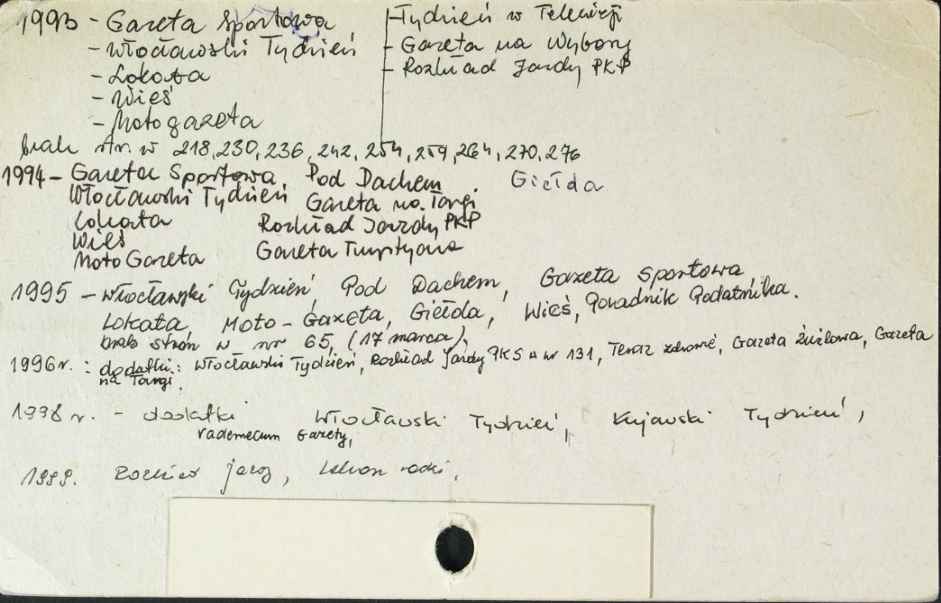 1993 - Gazeta Sportowa
- Włocławski Tydzień
- Lokata
- Wieś
- Motogazeta
- Tydzień w Telewizji
- Gazeta na Wybory
- Rozkład Jazdy PKP
brak str. w 218, 230, 236, 242, 254, 259, 264, 270, 276
1994 - Gazeta Sportowa, Pod Dachem, Giełda
Włocławski Tydzień Gazeta na Targi
Lokata Rozkład Jazdy PKP
Wieś
Moto Gazeta Gazeta Turystyczna
1995 - Włocławski Tydzień, Pod Dachem, Gazeta Sportowa,
Lokata, Moto-Gazeta, Giełda, Wieś, Poradnik Podatnika.
brak stron w nr 65, (17 marca).
1996 r. : dodatki: Włocławski Tydzień, Rozkład Jazdy PKS w nr 131, Teraz zdrowie, Gazeta Żużlowa, Gazeta
na Targi.
1998 r. - dodatki Włocławski Tydzień, Kujawski Tydzień,
Vademecum Gazety,
1999. jazdy,